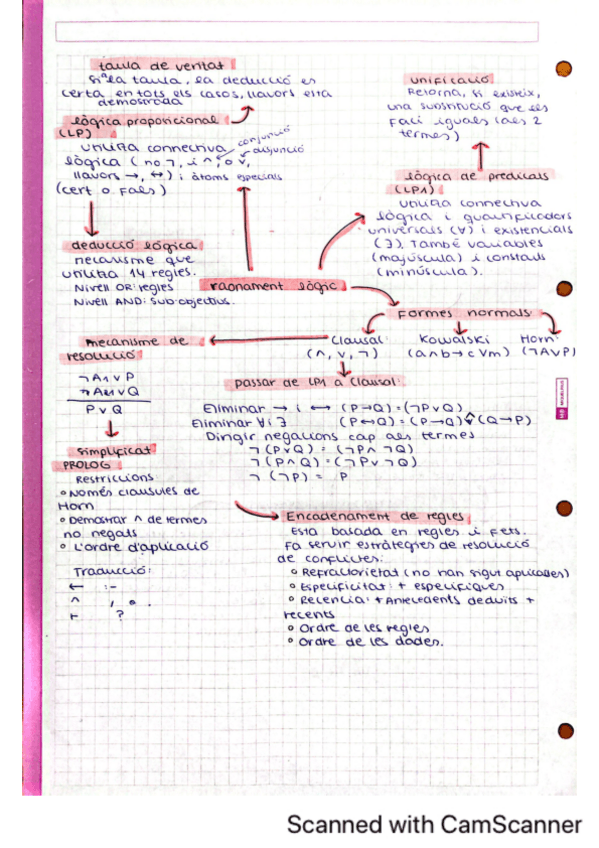 taula de veritat
si a la taula, la deducció es
certa en tots els casos, llavors està
demostrada
lògica proporcional
(LP)
utilitza connectiva
lògica (no ¬, i ∧, o ∨,
conjunció
disjunció
llavors →, ↔) i àtoms especials
(cert o fals)
deducció lògica
mecanisme que
utilitza 14 regles.
Nivell OR: regles
Nivell AND: sub-objectius.
raonament lògic
unificació
Retorna, si existeix,
una substitució que els
faci iguals (als 2
termes)
lògica de predicats
(LP1)
utilitza connectiva
lògica i quantificadors
universals (∀) i existencials
(∃). També variables
(majúscula) i constants
(minúscula).
Formes normals
Clausal
(∧, ∨, ¬)
Kowalski
(a∧b→c∨m)
Horn
(¬A∨P)
mecanisme de
resolució
¬A∧∨P
∨Q
P∨Q
simplificat
PROLOG
Restriccions
° Només clausules de
Horn
° Demostrar ∧ de termes
no negats
° L'ordre d'aplicació
Traducció:
← :-
∧ , o .
⊢ ?
passar de LP1 a Clausal:
Eliminar → i ↔ (P→Q)=(¬P∨Q)
Eliminar ∀ i ∃ (P↔Q)=(P→Q)∧(Q→P)
Dirigir negacions cap als termes
¬(P∨Q) = (¬P∧¬Q)
¬(P∧Q) = (¬P∨¬Q)
¬(¬P) = P
Encadenament de regles
Esta basada en regles i fets.
Fa servir estratègies de resolució
de conflictes:
° Refractorietat (no han sigut aplicades)
° Especificitat: + específiques
° Recencia: + Antecedents deduïts +
recents
° Ordre de les regles
° Ordre de les dades.
Scanned with CamScanner